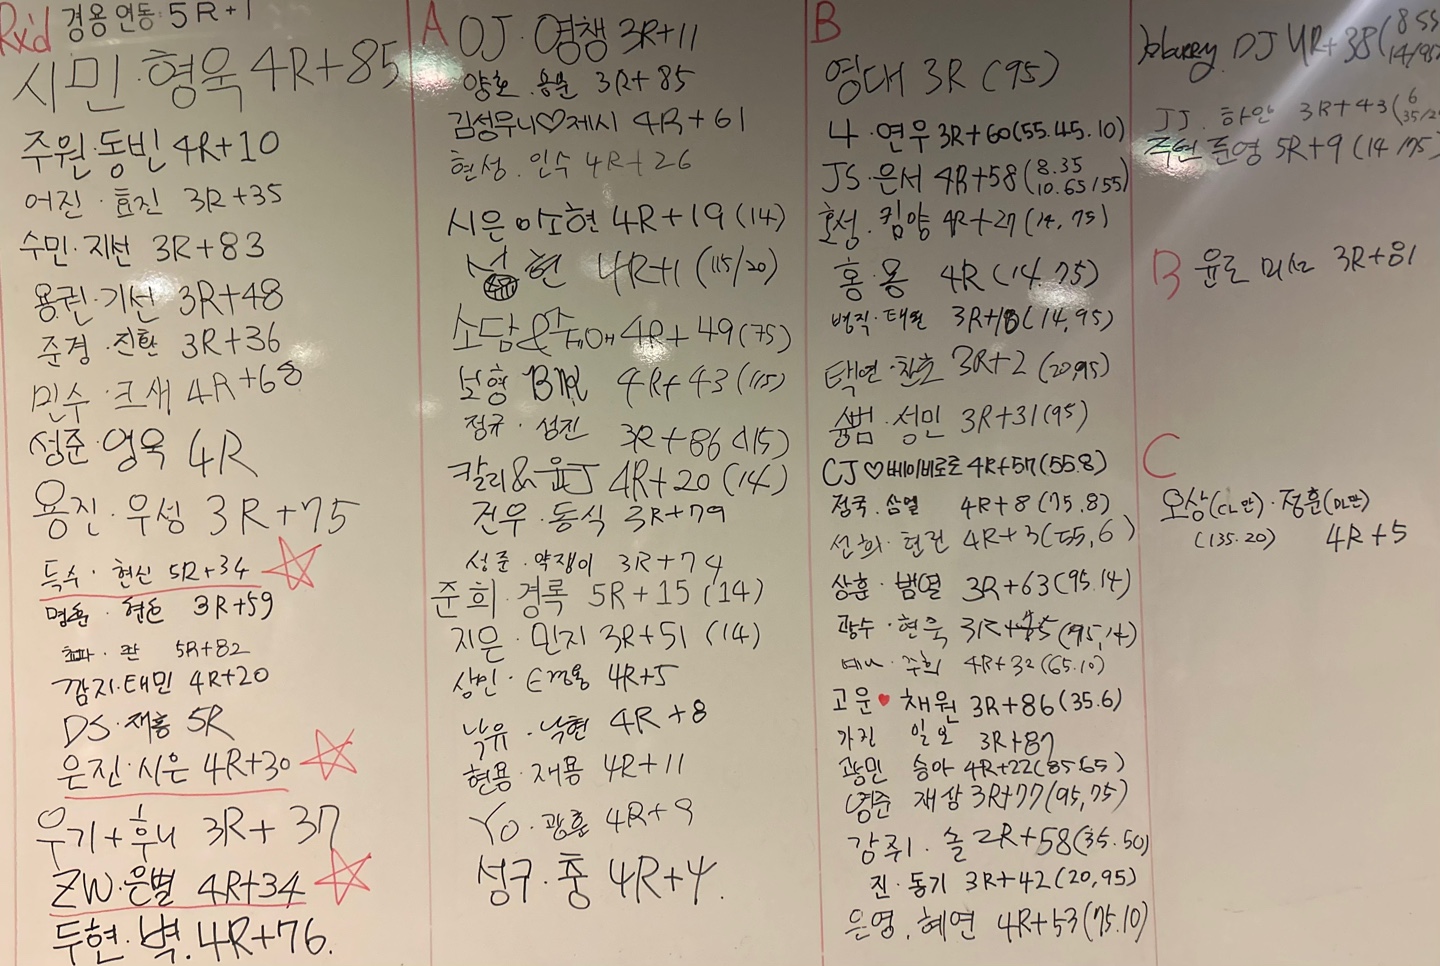 Rx'd 경용 연동: 5R+1
시민·형욱 4R+85
주원·동빈 4R+10
어진·효진 3R+35
수민·지선 3R+83
용권·기선 3R+48
준경·진환 3R+36
민수·크새 4R+68
성준·영욱 4R
용진·우성 3R+75
득수·현신 5R+34
현돈 3R+59
5R+82
깜지·태민 4R+20
DS·재홍 5R
은진·시은 4R+30
우기+후니 3R+37
ZW·은별 4R+34
두현·벽. 4R+76.
A OJ·영챙 3R+11
양호·용준 3R+85
김성우니♡제시 4R+61
현성·인수 4R+26
시은 이소현 4R+19(14)
현 4R+1(115/20)
소담& 4R+49(75)
보형 4R+43(115)
정규·성진 3R+86(115)
칼리&윤J 4R+20(14)
건우·동식 3R+79
성준·약쟁이 3R+74
준희·경록 5R+15(14)
지은·민지 3R+51(14)
상민· 4R+5
낙유·낙현 4R+8
현용·재용 4R+11
Yo·광훈 4R+9
성구·중 4R+4.
B
영대 3R(95)
나·연우 3R+60(55.45.10)
JS·은서 4R+58(8.35 10.65/55)
호성·킴양 4R+27(14,75)
홍·용 4R(14.75)
병직·태원 3R+18(14,95)
택연·찬호 3R+2(20,95)
슒범·성민 3R+31(95)
CJ♡베이비로로 4R+57(55.8)
정국·삼열 4R+8(75.8)
선희·현진 4R+3(55,6)
상훈·범열 3R+63(95.14)
광수·현욱 3R+ (95,14)
예니·주희 4R+32(65.10)
고운♥채원 3R+86(35.6)
가진 일오 3R+87
광민 승아 4R+22(85.65)
영준 재상 3R+77(95,75)
강쥐·솔 2R+58(35.50)
진·동기 3R+42(20,95)
은영·혜연 4R+53(75.10)
DJ 4R+38(8 55 14/95)
JJ·하얀 3R+43(6 35/2
준영 5R+9(14/75)
B 윤로 미소 3R+81
C
오상(CL만)·정훈(DL만)
(135.20) 4R+5